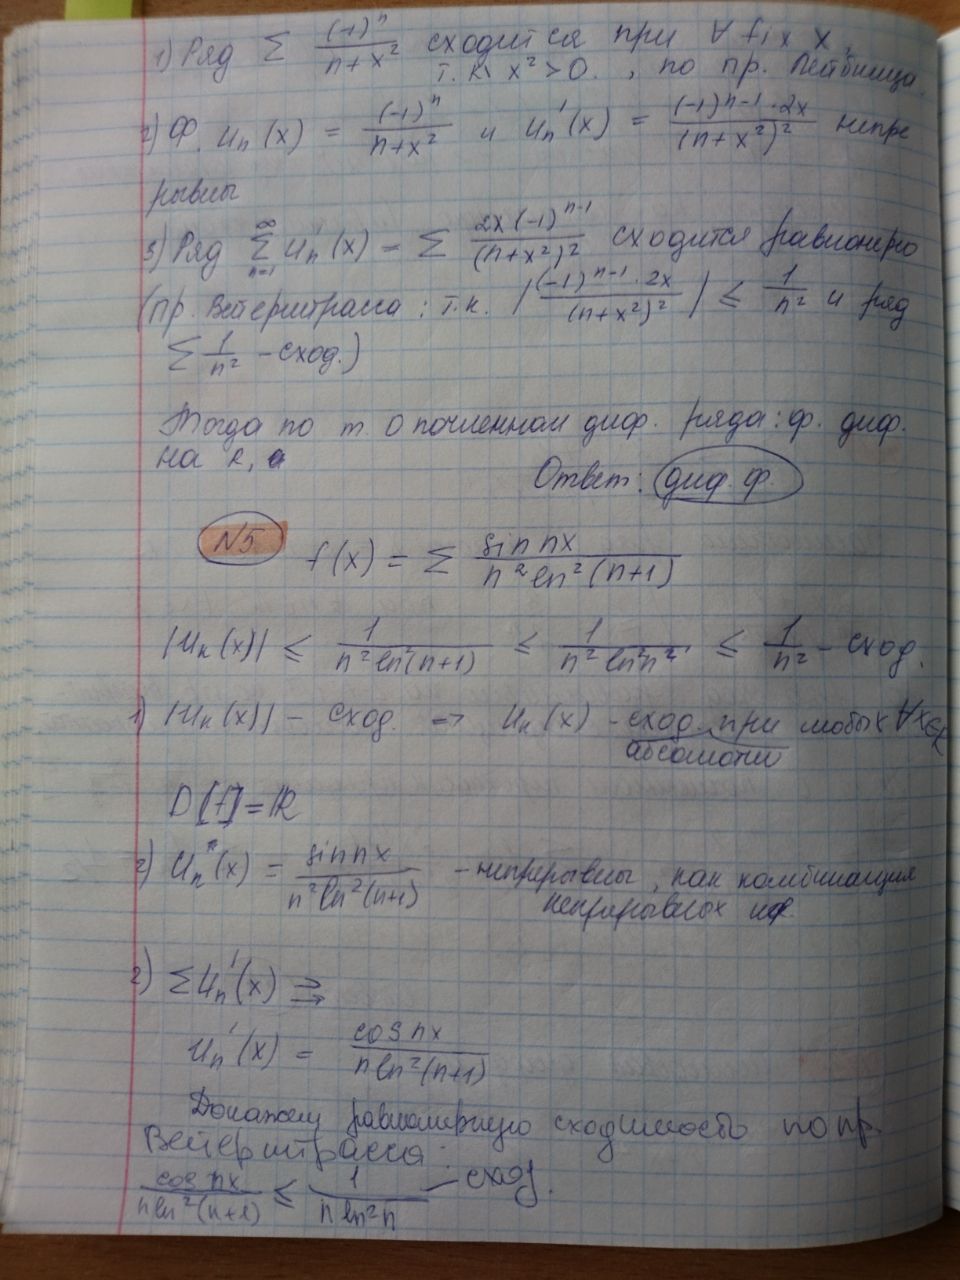 1) Ряд ∑ (-1)^n / (n+x²) сходится при ∀ fix x,
т.к x² > 0. , по пр. Лейбница
2) Ф. Un(x) = (-1)^n / (n+x²) и Un'(x) = (-1)^(n-1)·2x / (n+x²)² непре
рывны
3) Ряд ∑_(n=1)^∞ Un'(x) = ∑ 2x(-1)^(n-1) / (n+x²)² сходится равномерно
(пр. Вейерштрасса: т.к. |(-1)^(n-1)·2x / (n+x²)²| ≤ 1/n² и ряд
∑ 1/n² - сход.)
Тогда по т. о почленном диф. ряда: ф. диф.
на R,
Ответ: диф. ф.
N5
f(x) = ∑ sin nx / (n² ln²(n+1))
|Un(x)| ≤ 1 / (n² ln²(n+1)) ≤ 1 / (n² ln² n) ≤ 1/n² - сход.
1) |Un(x)| - сход. → Un(x) - сход. при любых ∀x∈R
абсолютно
D[f] = R
2) Un(x) = sin nx / (n² ln²(n+1)) - непрерывны, как комбинация
непрерывных
2) ∑Un'(x) ⇉
Un'(x) = cos nx / (n ln²(n+1))
Докажем равномерную сходимость по пр.
Вейерштрасса:
cos nx / (n ln²(n+1)) ≤ 1 / (n ln² n) - сход.